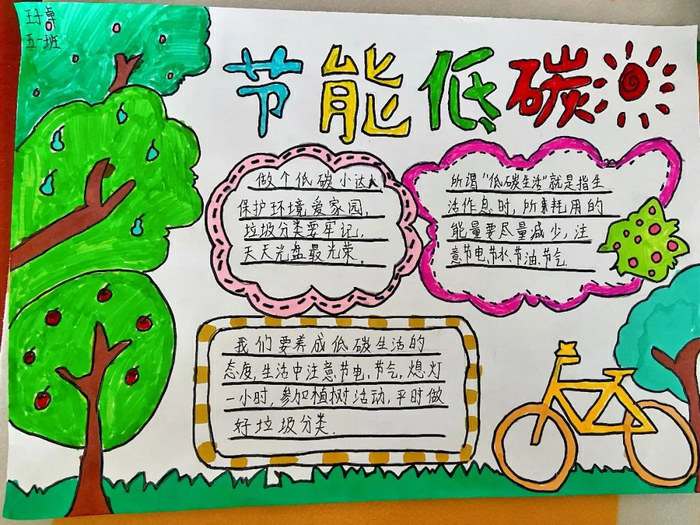 五一班
节能低碳
做个低碳小达人
保护环境爱家园,
垃圾分类要牢记,
天天光盘最光荣.
所谓"低碳生活"就是指生
活作息时,所乘耗用的
能量要尽量减少,注
意节电、节水、节油、节气
我们要养成低碳生活的
态度,生活中注意节电,节气,熄灯
一小时,参加植树活动,平时做
好垃圾分类.